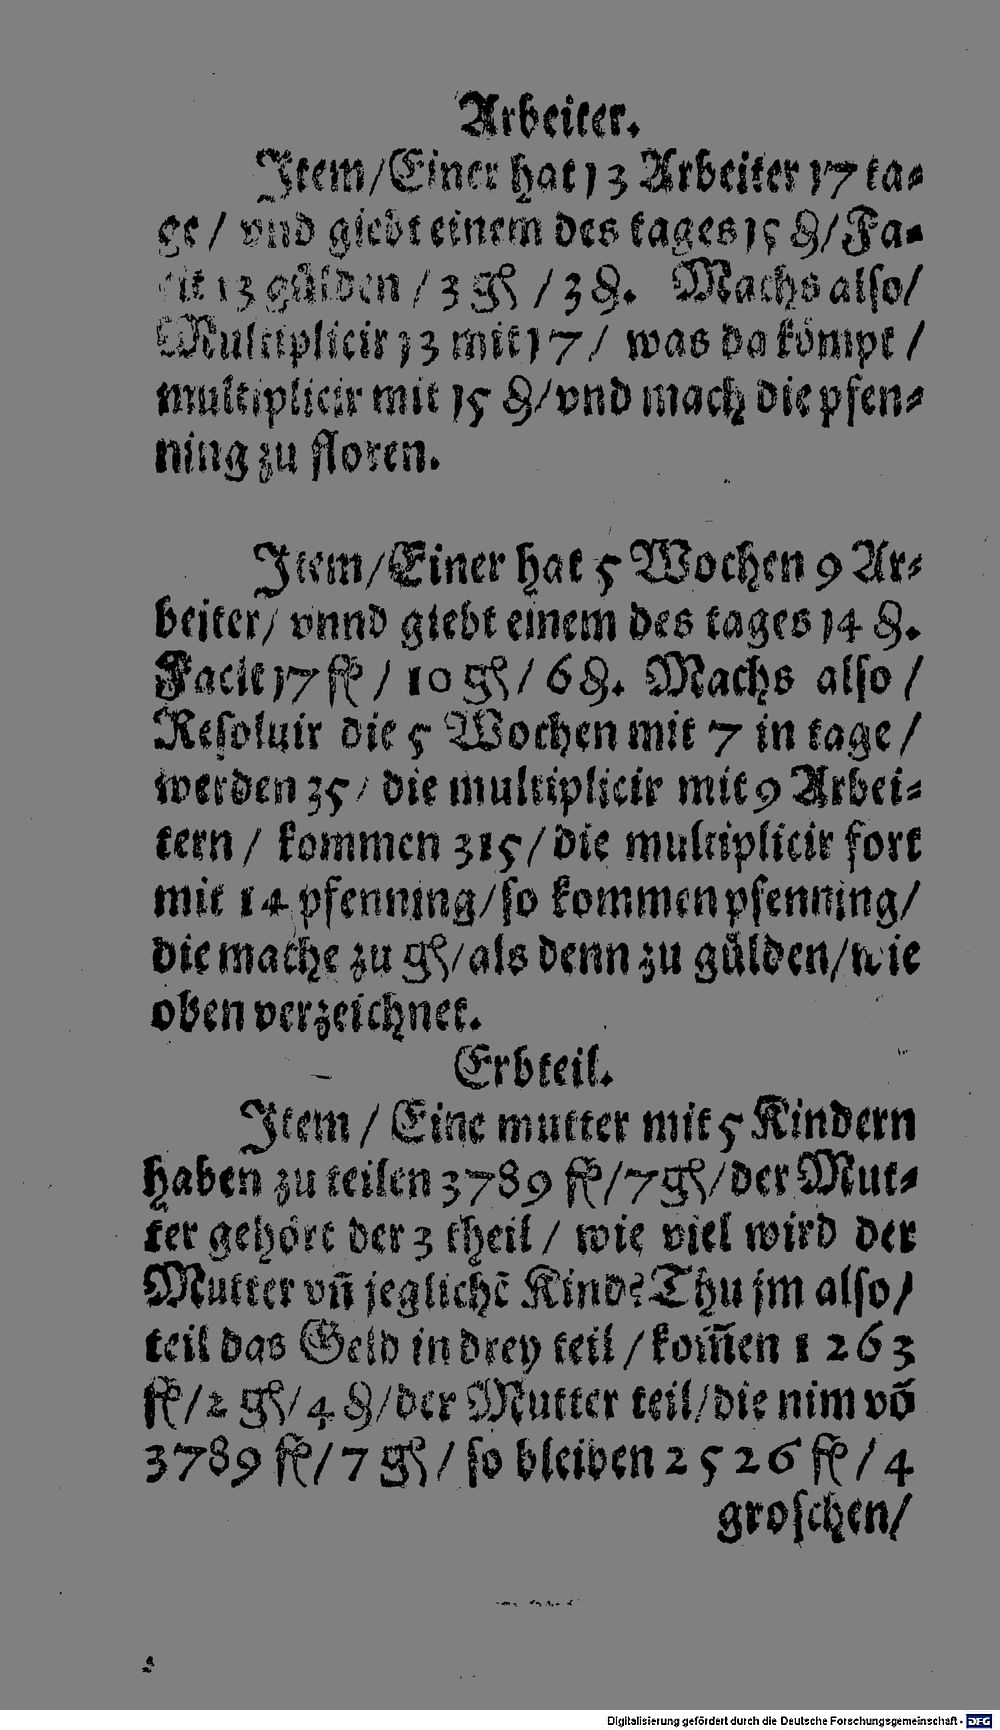 Arbeiter.
Item/Einer hat 13 Arbeiter 17 ta⸗
ge / vnd giebt einem des tages 15 ₰/Fa⸗
cit 13 gülden / 3 gſ / 3 ₰. Machs alſo/
Multiplicir 13 mit 17 / was da kömpt /
multiplicir mit 15 ₰/vnd mach die pfen⸗
ning zu floren.
Item/Einer hat 5 Wochen 9 Ar⸗
beiter/ vnnd giebt einem des tages 14 ₰.
Facit 17 fl / 10 gſ / 6 ₰. Machs alſo /
Reſoluir die 5 Wochen mit 7 in tage /
werden 35 / die multiplicir mit 9 Arbei⸗
tern / kommen 315/ die multiplicir fort
mit 14 pfenning/ſo kommen pfenning/
die mache zu gſ/als denn zu gülden/wie
oben verzeichnet.
Erbteil.
Item / Eine mutter mit 5 Kindern
haben zu teilen 3789 fl/7 gſ/der Mut⸗
ter gehört der 3 theil / wie viel wird der
Mutter vñ jeglichē Kind? Thu jm alſo/
teil das Geld in drey teil / kom̃en 1263
fl/2 gſ/4 ₰/der Mutter teil/die nim võ
3789 fl/7 gſ/ ſo bleiben 2526 fl / 4
groſchen/
Digitalisierung gefördert durch die Deutsche Forschungsgemeinschaft - DFG